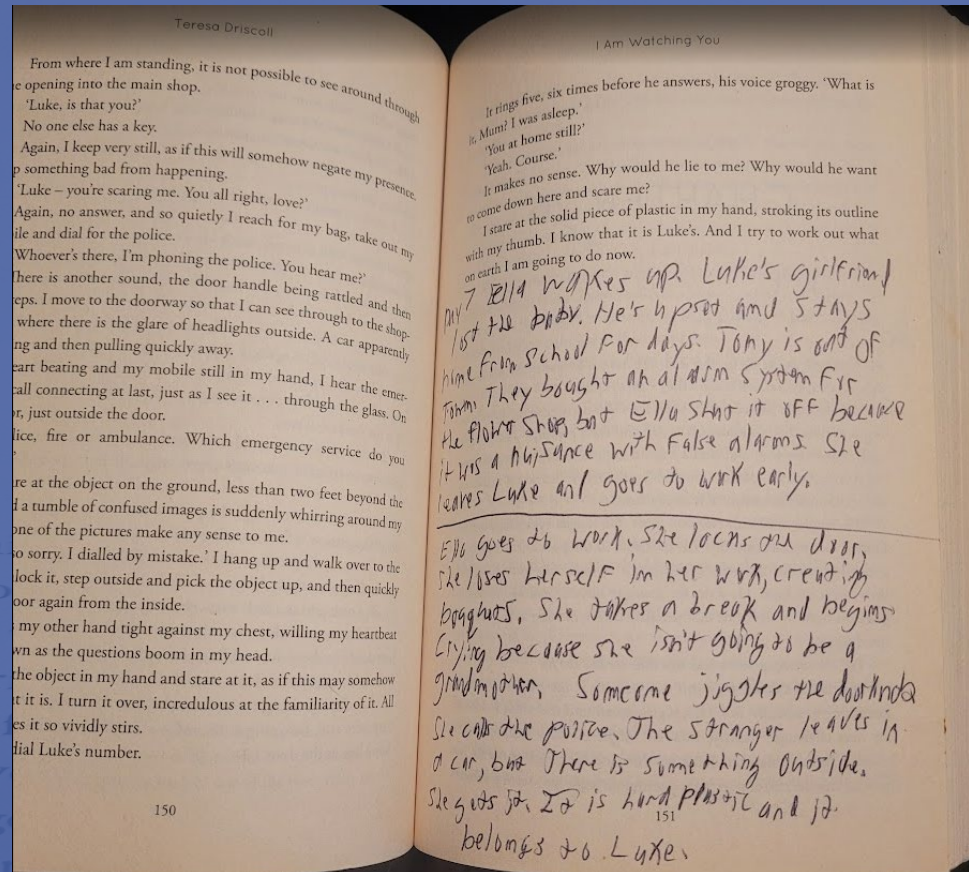 Teresa Driscoll
From where I am standing, it is not possible to see around through
e opening into the main shop.
'Luke, is that you?'
No one else has a key.
Again, I keep very still, as if this will somehow negate my presence.
p something bad from happening.
'Luke – you're scaring me. You all right, love?'
Again, no answer, and so quietly I reach for my bag, take out my
ile and dial for the police.
Whoever's there, I'm phoning the police. You hear me?'
There is another sound, the door handle being rattled and then
eps. I move to the doorway so that I can see through to the shop-
where there is the glare of headlights outside. A car apparently
ng and then pulling quickly away.
eart beating and my mobile still in my hand, I hear the emer-
call connecting at last, just as I see it . . . through the glass. On
or, just outside the door.
lice, fire or ambulance. Which emergency service do you
'
re at the object on the ground, less than two feet beyond the
d a tumble of confused images is suddenly whirring around my
one of the pictures make any sense to me.
so sorry. I dialled by mistake.' I hang up and walk over to the
lock it, step outside and pick the object up, and then quickly
oor again from the inside.
my other hand tight against my chest, willing my heartbeat
wn as the questions boom in my head.
the object in my hand and stare at it, as if this may somehow
t it is. I turn it over, incredulous at the familiarity of it. All
es it so vividly stirs.
dial Luke's number.
150
I Am Watching You
It rings five, six times before he answers, his voice groggy. 'What is
it, Mum? I was asleep.'
'You at home still?'
'Yeah. Course.'
It makes no sense. Why would he lie to me? Why would he want
to come down here and scare me?
I stare at the solid piece of plastic in my hand, stroking its outline
with my thumb. I know that it is Luke's. And I try to work out what
on earth I am going to do now.
Day 7 Ella wakes up. Luke's girlfriend
lost the baby. He's upset and stays
home from school for days. Tony is out of
town. They bought an alarm system for
the flower shop, but Ella shut it off because
it was a nuisance with false alarms. She
leaves Luke and goes to work early.
Ella goes to work. She locks the door,
she loses herself in her work, creating
bouquets. She takes a break and begins
crying because she isn't going to be a
grandmother. Someone jiggles the doorknob
She calls the police. The stranger leaves in
a car, but there is something outside.
She gets it. It is hard plastic and it
151
belongs to Luke.